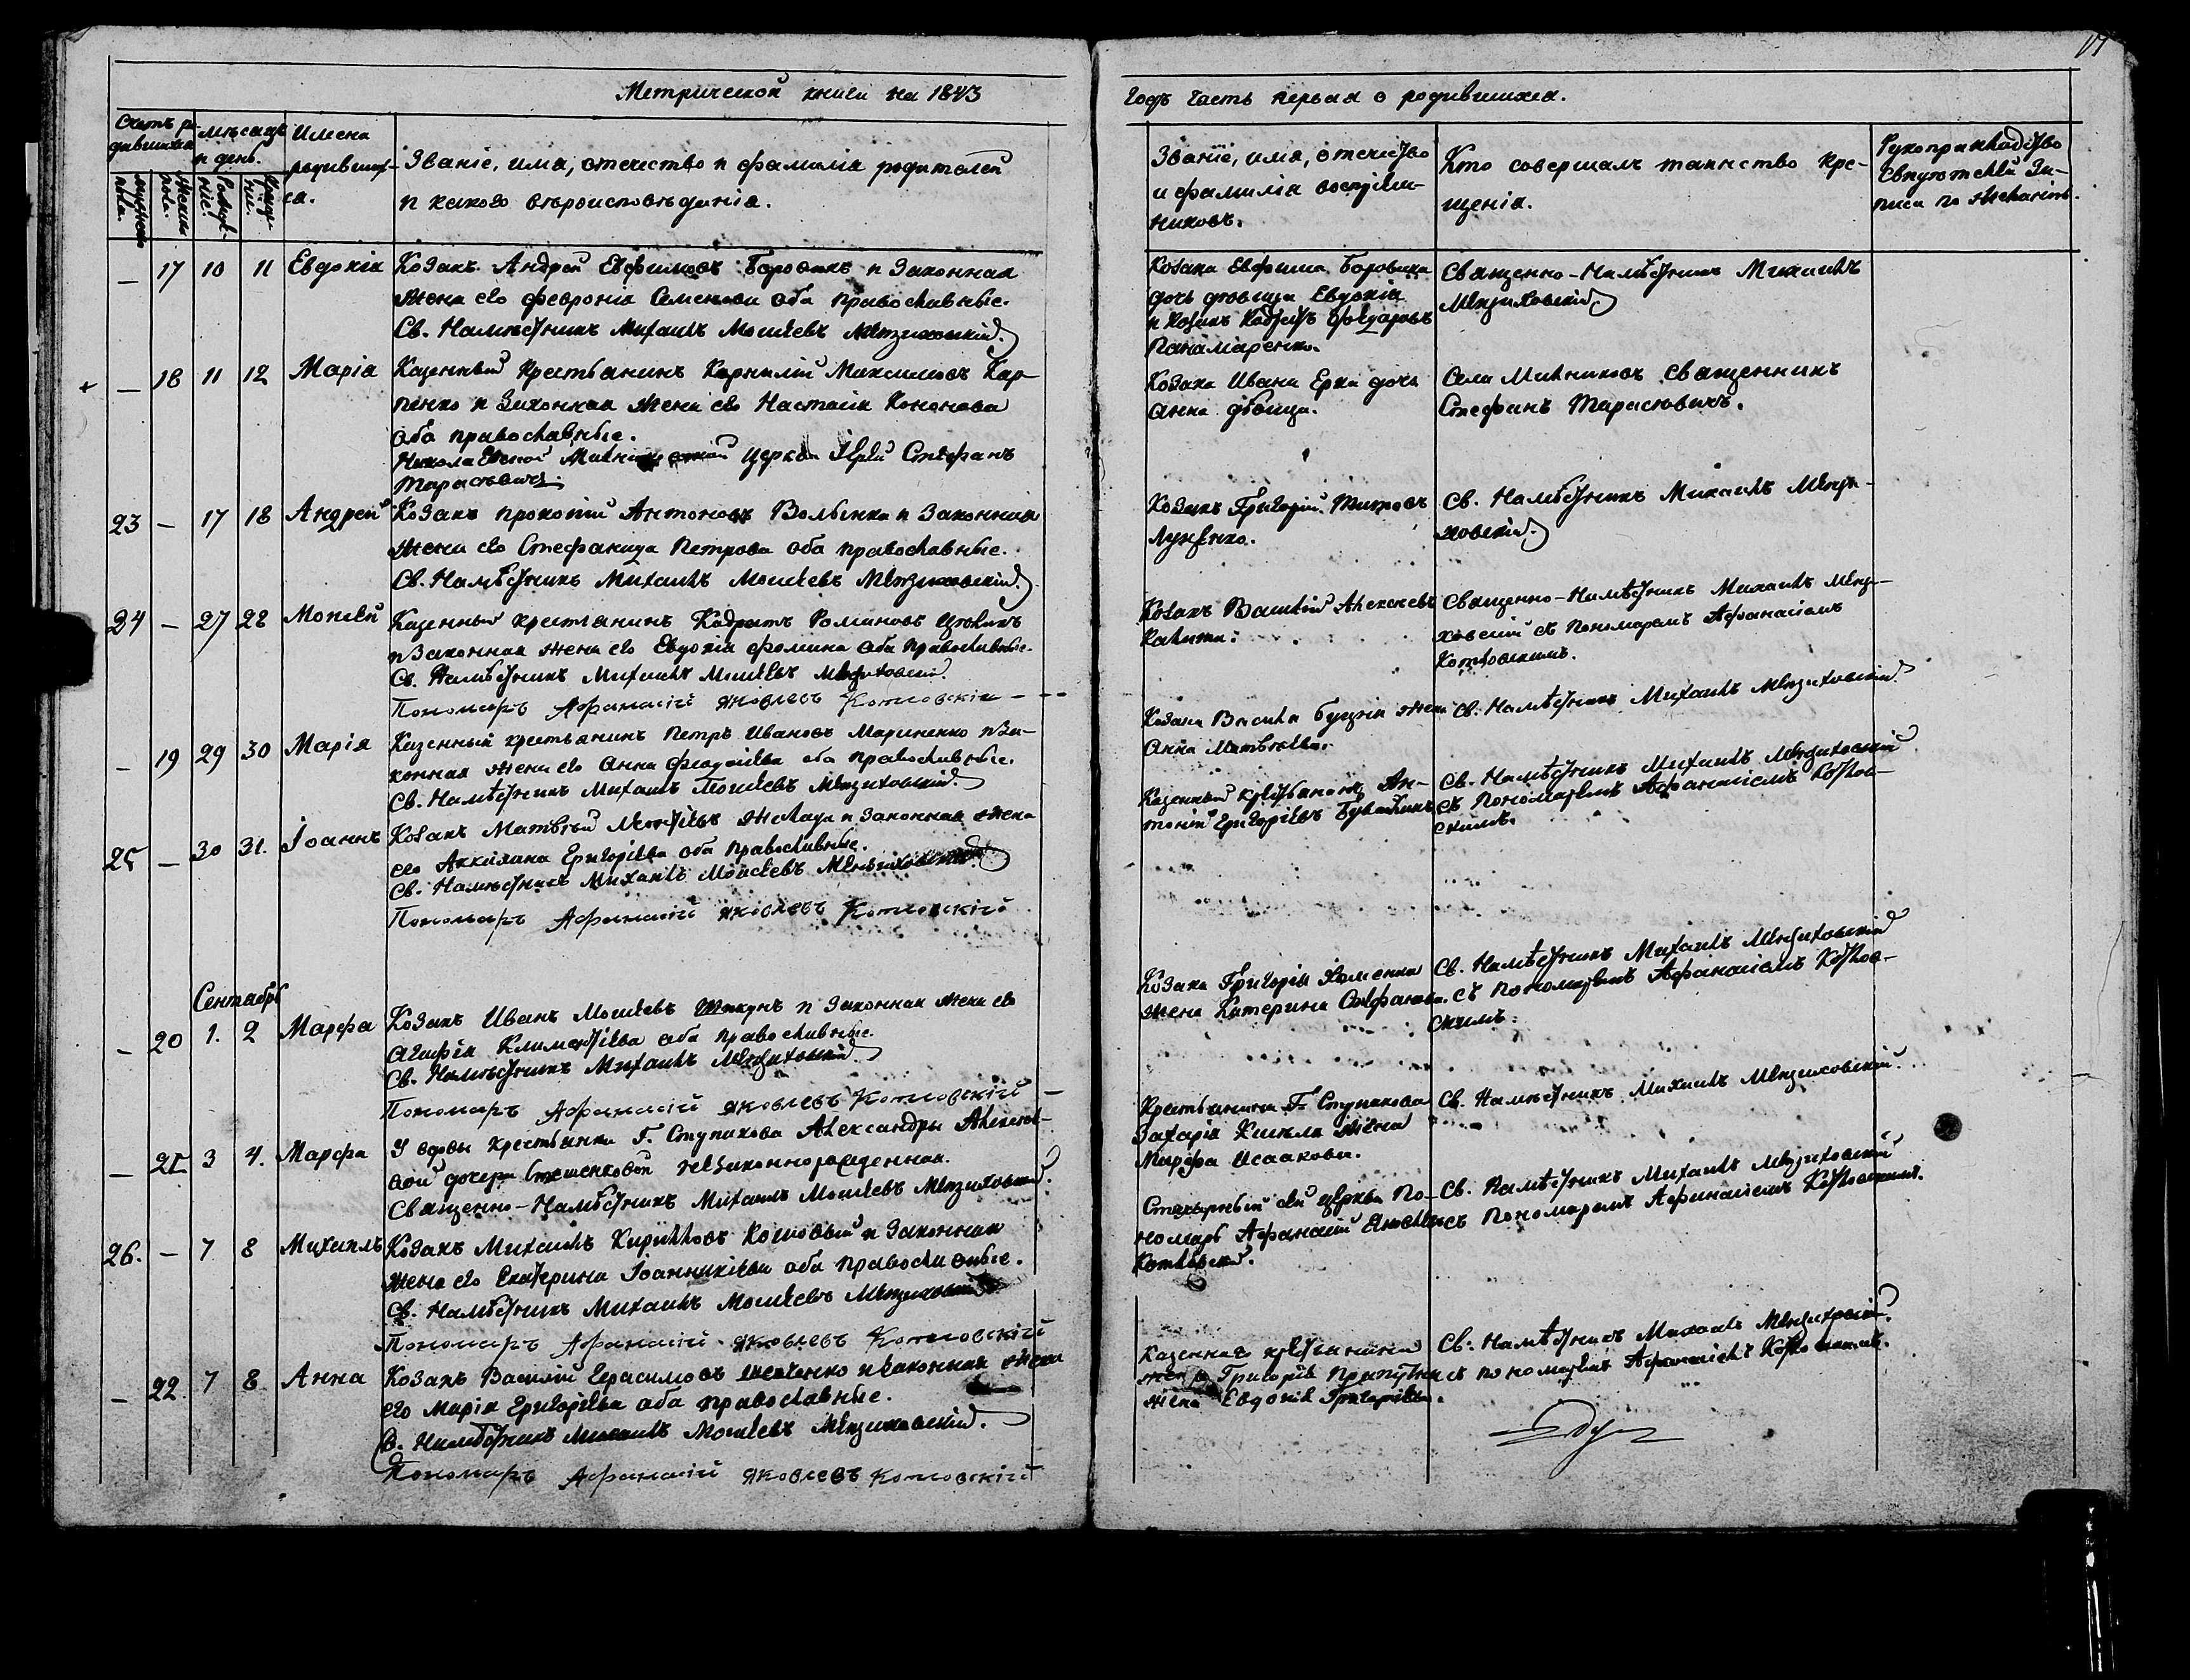 Метрической книги на 1843
Годъ часть первая о родившихся.
17
Счетъ родившихся
мужеска пола.
женска пола.
мѣсяцъ и день.
Рожденіе.
Крещеніе.
Имена
родившихся.
Званіе, имя, отчество и фамилія родителей
и какого вѣроисповѣданія.
Званіе, имя, отчество
и фамилія воспріем-
никовъ.
Кто совершалъ таинство кре-
щенія.
Рукоприкладство
свидѣтелей за-
писи по желанію.
— 17 10 11 Евдокія
Козакъ Андрей Евфимовъ Боровикъ и Законная
жена его Февронія Семенова оба православные.
Св. Намѣстникъ Михаилъ Моисеевъ
Козака Евфима Боровика
дочь дѣвица Евдокія
Панамаренко.
Священно-Намѣстникъ Михаилъ
— 18 11 12 Марія
Казенный крестьянинъ Корнилій Максимовъ Кар-
пенко и Законная жена его Настасія Кононова
оба православные.
церкви Іерей Стефанъ
Тарасевичъ.
Козака Ивана Ерка дочь
Анна дѣвица.
Священникъ
Стефанъ Тарасевичъ.
23 — 17 18 Андрей
Козакъ Прокопій Антоновъ Волынка и Законная
жена его Стефанида Петрова оба православные.
Св. Намѣстникъ Михаилъ Моисеевъ
Козакъ Григорій Титовъ
Луценко.
Св. Намѣстникъ Михаилъ
24 — 27 28 Моисей
Казенный крестьянинъ Кодратъ Романовъ
и Законная жена его Евдокія Фомина оба православные.
Св. Намѣстникъ Михаилъ Моисеевъ
Пономарь Афанасій Яковлевъ Котловскій
Козакъ Василій Алексеевъ
Калита.
Священно-Намѣстникъ Михаилъ
съ пономаремъ Афанасіемъ
Котловскимъ.
— 19 29 30 Марія
Казенный крестьянинъ Петръ Ивановъ Мариненко и За-
конная жена его Анна Феодосіева оба православные.
Св. Намѣстникъ Михаилъ Моисеевъ
Козака Василя Буцня жена
Анна Матвѣева.
Св. Намѣстникъ Михаилъ
25 — 30 31. Іоаннъ
Козакъ Матвѣй и Законная жена
его Акилина Григоріева оба православные.
Св. Намѣстникъ Михаилъ Моисеевъ
Пономарь Афанасій Яковлевъ Котловскій
Казенный крестьянинъ Ан-
тоній Григоріевъ
Св. Намѣстникъ Михаилъ
съ пономаремъ Афанасіемъ Котлов-
скимъ.
Сентябрь
— 20 1. 2 Марфа
Козакъ Иванъ Моисеевъ и Законная жена его
Агафія Климентіева оба православные.
Св. Намѣстникъ Михаилъ
Пономарь Афанасій Яковлевъ Котловскій —
Козака Григорія Хоменка
жена Катерина Стефанова.
Св. Намѣстникъ Михаилъ
съ пономаремъ Афанасіемъ Котлов-
скимъ.
— 21 3 4. Марфа
У вдовы крестьянки Г. Ступакова Александры Алексеев-
ой дочери незаконнорожденная.
Священно-Намѣстникъ Михаилъ Моисеевъ
Крестьянина Г. Ступакова
Захарія жена
Марфа Исаакова.
Св. Намѣстникъ Михаилъ
26. — 7 8 Михаилъ
Козакъ Михаилъ Кирилловъ Кошовый и Законная
жена его Екатерина Іоанникіева оба православные.
Св. Намѣстникъ Михаилъ Моисеевъ
Пономарь Афанасій Яковлевъ Котловскій
церкви По-
номарь Афанасій Яковлевъ
Котловскій.
Св. Намѣстникъ Михаилъ
съ пономаремъ Афанасіемъ Котловскимъ.
— 22 7 8 Анна
Козакъ Василій Герасимовъ Шевченко и Законная жена
его Марія Григоріева оба православные.
Св. Намѣстникъ Михаилъ Моисеевъ
Пономарь Афанасій Яковлевъ Котловскій
Казеннаго крестьянина
Григорія
жена Евдокія Григоріева.
Св. Намѣстникъ Михаилъ
съ пономаремъ Афанасіемъ Котловскимъ.